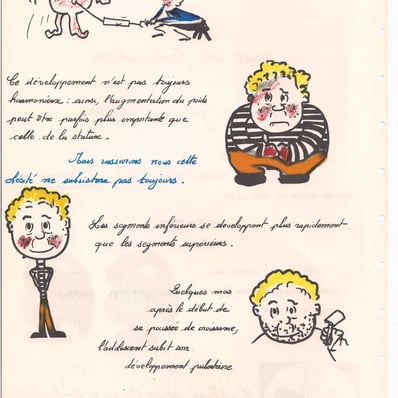 Ce développement n'est pas toujours
harmonieux : ainsi, l'augmentation du poids
peut être parfois plus importante que
celle de la stature.
Mais rassurons nous cette
obésité ne subsistera pas toujours.
Les segments inférieurs se développent plus rapidement
que les segments supérieurs.
Quelques mois
après le début de
sa poussée de croissance,
l'adolescent subit son
développement pubertaire